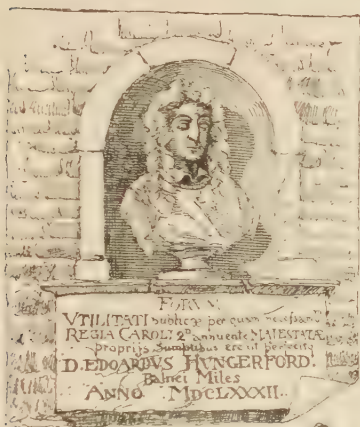 FORUM
VTILITATI publicæ per quam necessariū
REGIA CAROLI 2di annuente MAIESTATE
propriis Sumptibus erexit perfecitq
D. EDOARDVS HVNGERFORD.
Balnei Miles
ANNO MDCLXXXII.